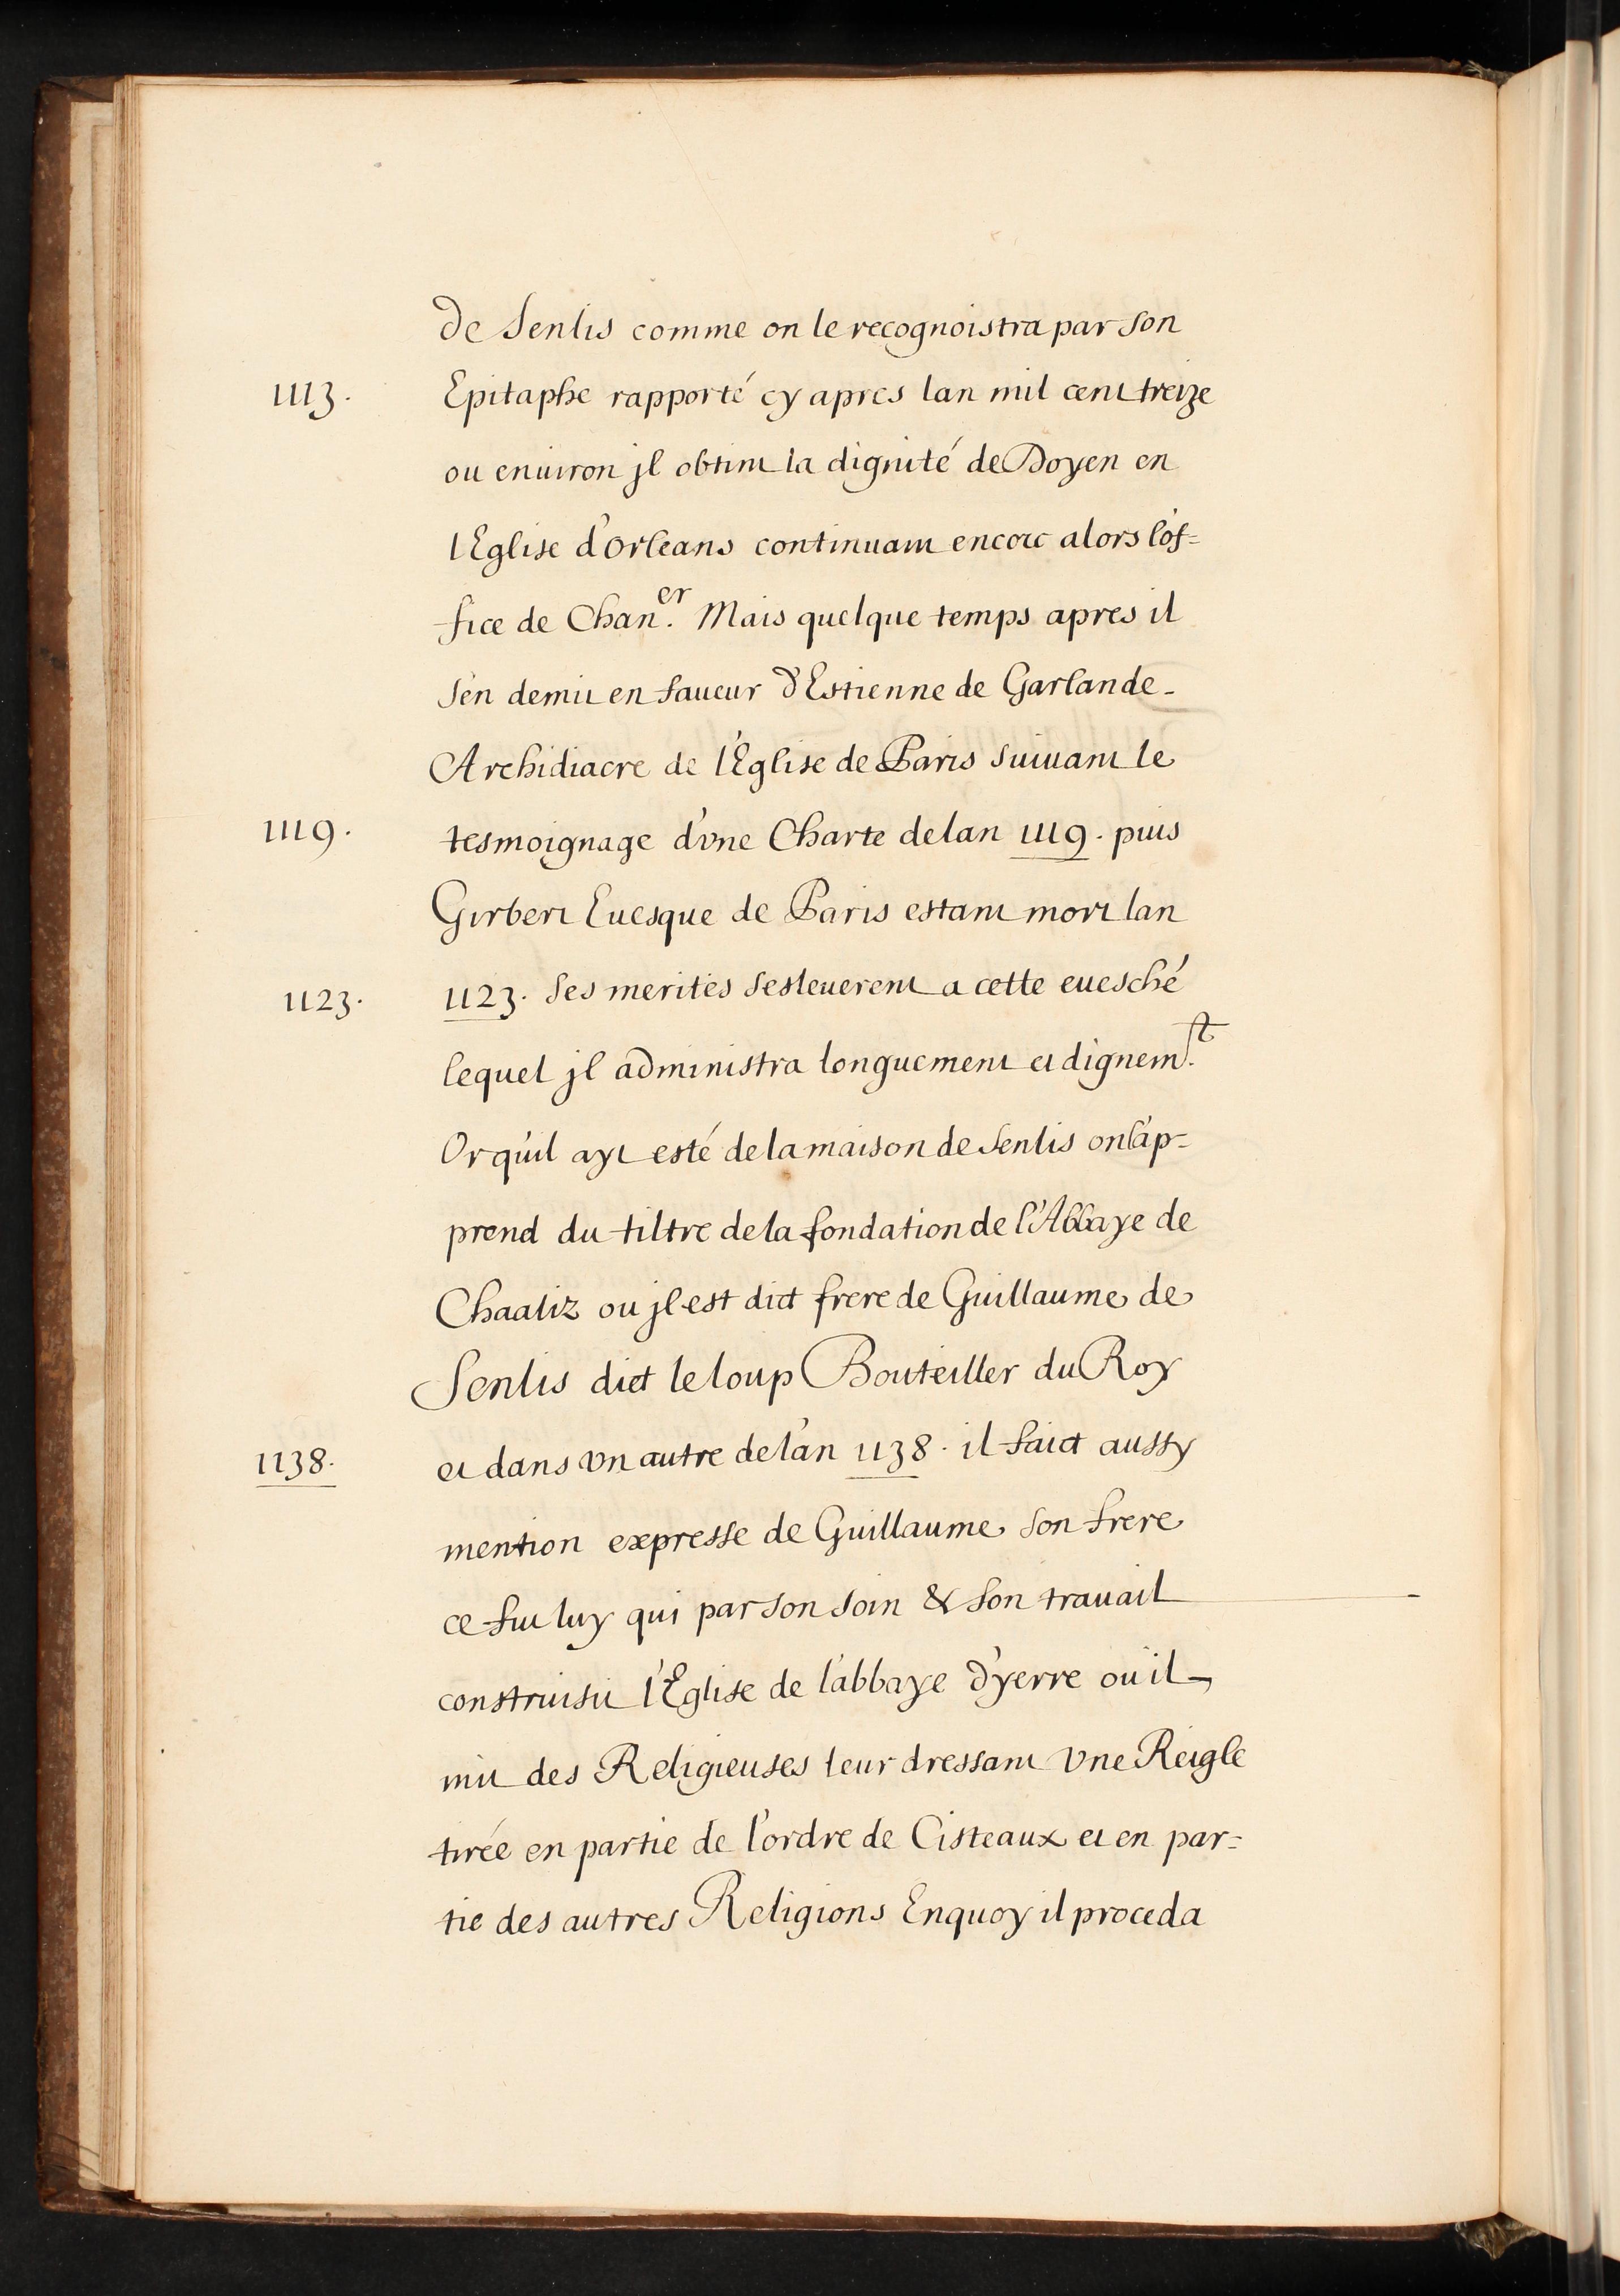 de Senlis comme on le recognoistra par son
1113.
Epitaphe rapporté cy apres lan mil cent treize
ou enuiron jl obtint la dignité de Doyen en
l'Eglise d'Orleans continuant encore alors l'of=
fice de Chan.er Mais quelque temps apres il
s'en demit en faueur d'Estienne de Garlande
Archidiacre de l'Eglise de Paris suiuant le
1119.
tesmoignage d'vne Charte de lan 1119. puis
Girbert Euesque de Paris estant mort lan
1123.
1123. ses merites sesleuerent a cette euesché
lequel jl administra longuement et dignem.t
Or qu'il ayt esté de la maison de Senlis on l'ap=
prend du tiltre de la fondation de l'Abbaye de
Chaaliz ou jl est dict frere de Guillaume de
Senlis dict le loup Bouteiller du Roy
1138.
et dans vn autre de l'an 1138. il faict aussy
mention expresse de Guillaume son frere
ce fut luy qui par son soin & son trauail
construisit l'Eglise de l'abbaye d'yerre ou il
mit des Religieuses leur dressant vne Reigle
tirée en partie de l'ordre de Cisteaux et en par=
tie des autres Religions Enquoy il proceda